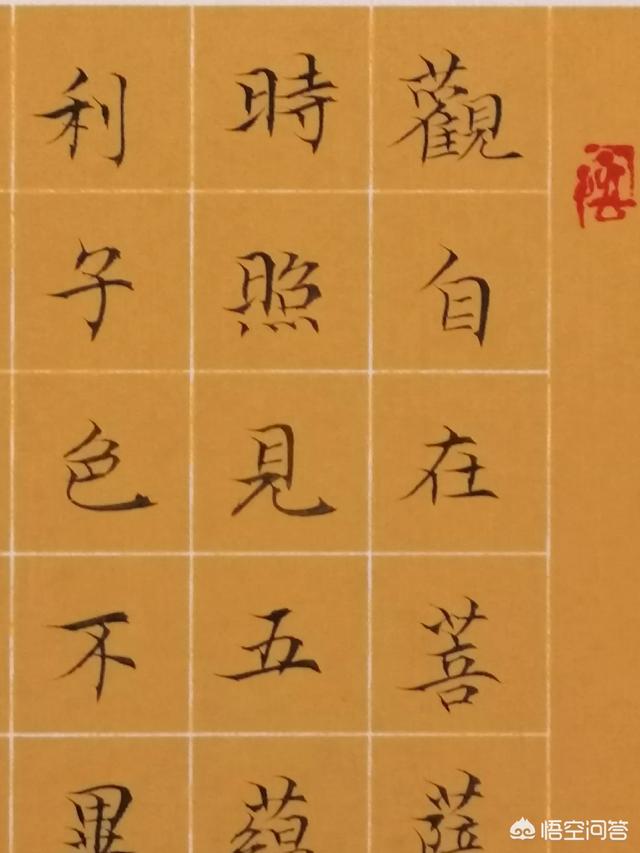 觀自在菩薩
時照見五蘊
利子色不異
悟空问答